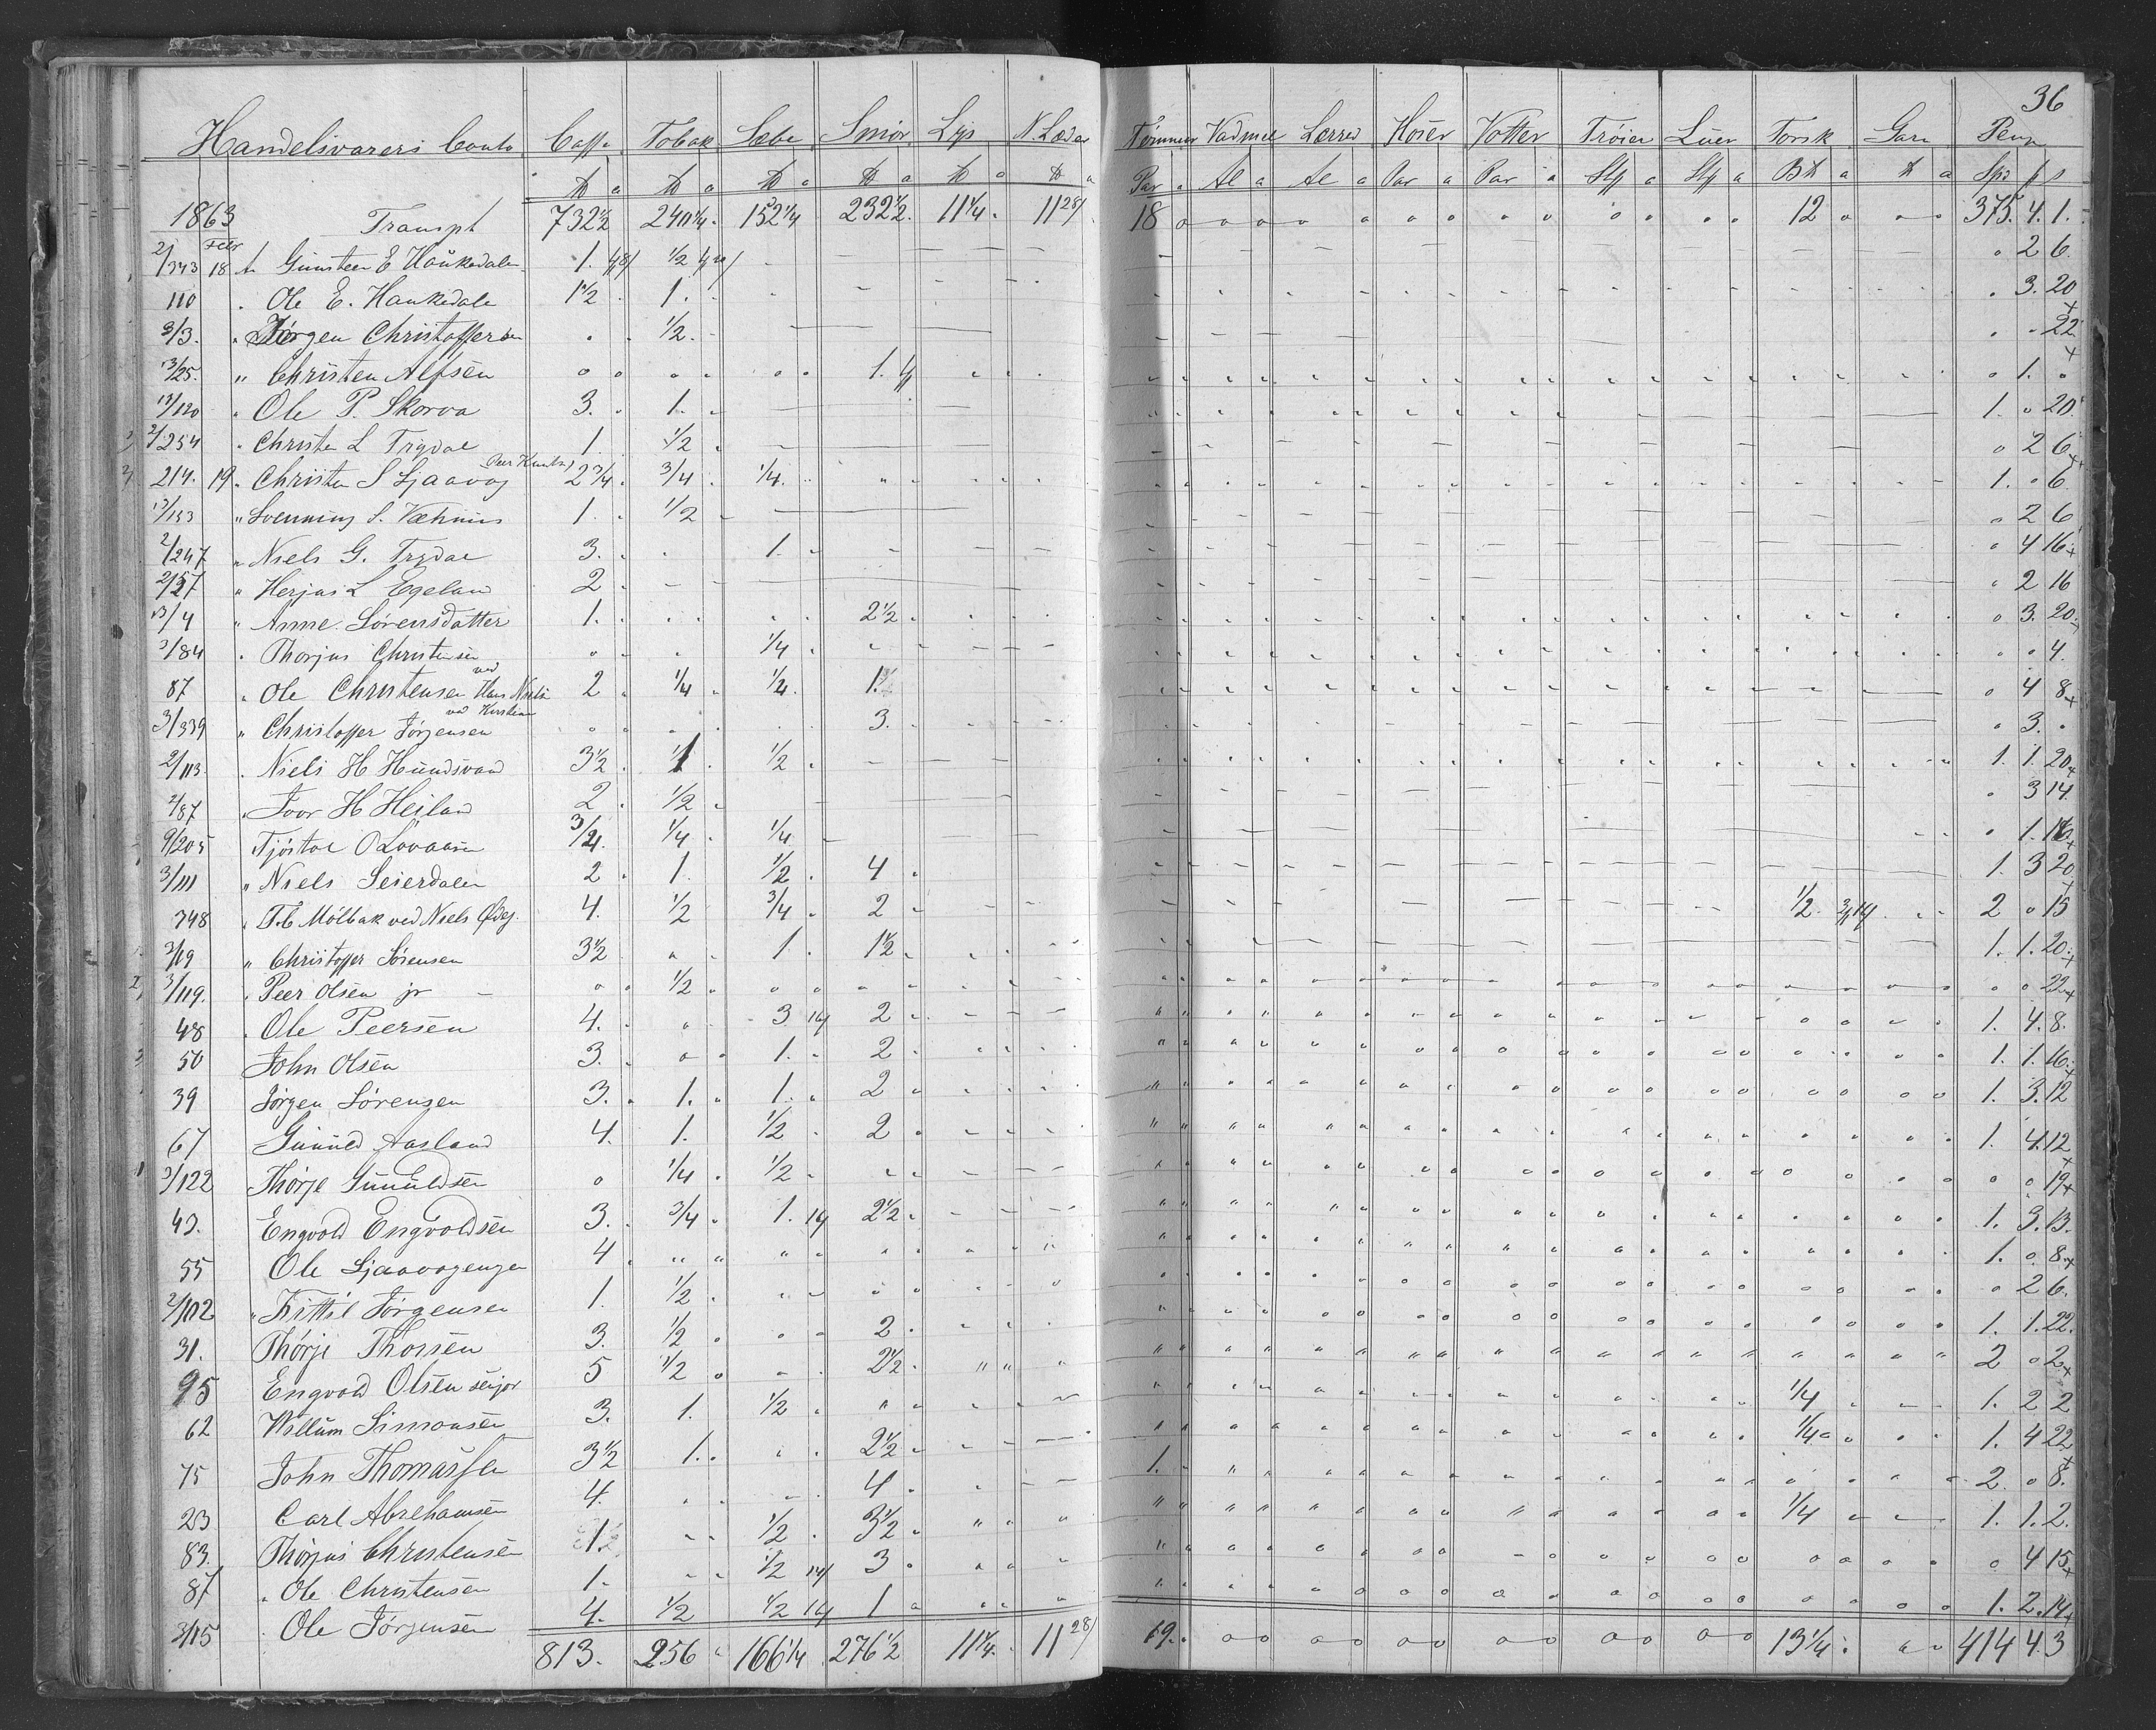 36
Handelsvarers Conto Caffe Tobak Sæbe Smör Lys N. Læder Tömmer Vadmel Lærred Hoser Votter Tröier Luer Torsk Garn Penge
1863 Transpt 732 1/2 240 1/4 152 1/4 232 1/2 11 1/4 11 28/ 18 12 375. 4. 1.
2/343 Febr 18 Gunsteen E Haukedalen 1. 1/2 2 6
110 Ole E. Haukedale 1 1/2 1. 3. 20
3/3. Jörgen Christoffersen 1/2. 22
13/25. " Christen Alfsen 1. 1.
13/120 Ole P. Skorva 3. 1. 1. 20
2/254 Christen L Trydal 1. 1/2 2 6
214. 19 Christen S Ljaavog Peer Knuts. 2 3/4 3/4 1/4. 1. 6
13/153 " Svenning S. 1. 1/2 2 6
2/247 Niels G. Trydal 3. 1. 4 16
2/57 " Herjus L Egeland 2. 2 16
13/4 " Anne Sörensdatter 1. 2 1/2 3. 20
3/84 Thorjus Christensen 1/4 4.
87 Ole Christensen ved Hans Nielsen 2 1/4 1/4. 1. 4 8
3/339 " Christoffer Jörgensen ved Kirstine 3. 3.
2/113. Niels H Hundsvand 3 1/2 1. 1/2 1. 1. 20
2/87 Ivor H Heiland 2 1/2 3 14
9/205 Tjöstol O Lövaasen 3/4. 1/4 1/4 1.
3/111 " Niels Seierdalen 2 1. 1/2 4 1. 3 20
348 T. C. Mölbak ved Niels 4. 1/2 3/4 2 1/2 2 15
3/19 " Christoffer Sörensen 3 1/2 1. 1 1/2 1. 1. 20
3/119. Peer Olsen jr 1/2 22
48 Ole Peersen 4. 3 14 2 1. 4. 8.
50 John Olsen 3. 1. 2 1. 1. 16
39 Jörgen Sörensen 3. 1. 1. 2 1. 3. 12
67 Gunuld Aasland 4. 1. 1/2 2 1. 4. 12
3/122 Thörje Gunuldsen 1/4 1/2 19
43. Engvold Engvoldsen 3. 3/4 1. 14 2 1/2 1. 3. 13.
55 Ole Ljaavogengen 4 1. 8.
2/102 " Kittil Jörgensen 1. 1/2 2 6.
31. Thörje Thorsen 3. 1/2 2 1. 1. 22.
95 Engvold Olsen senjor 5 1/2 2 1/2 2 2
62 Willum Simonsen 3. 1. 1/2 1/4 1. 2 2
75 John Thomassen 3 1/2 1. 2 1/2 1/4 1. 4 22
23 Carl Abrehamsen 4. 4 1. 2. 8.
83. Thörjus Christensen 1. 1/2 3 1/2 1/4 1. 1. 2.
87 Ole Christensen 1. 1/2 14 3 4 15
3/15 Ole Jörgensen 4. 1/2 1/2 14 1 1. 2. 14
813. 256 166 1/4 276 1/2 11 1/4. 11 28/ 19. 13 1/4. 414 4. 3